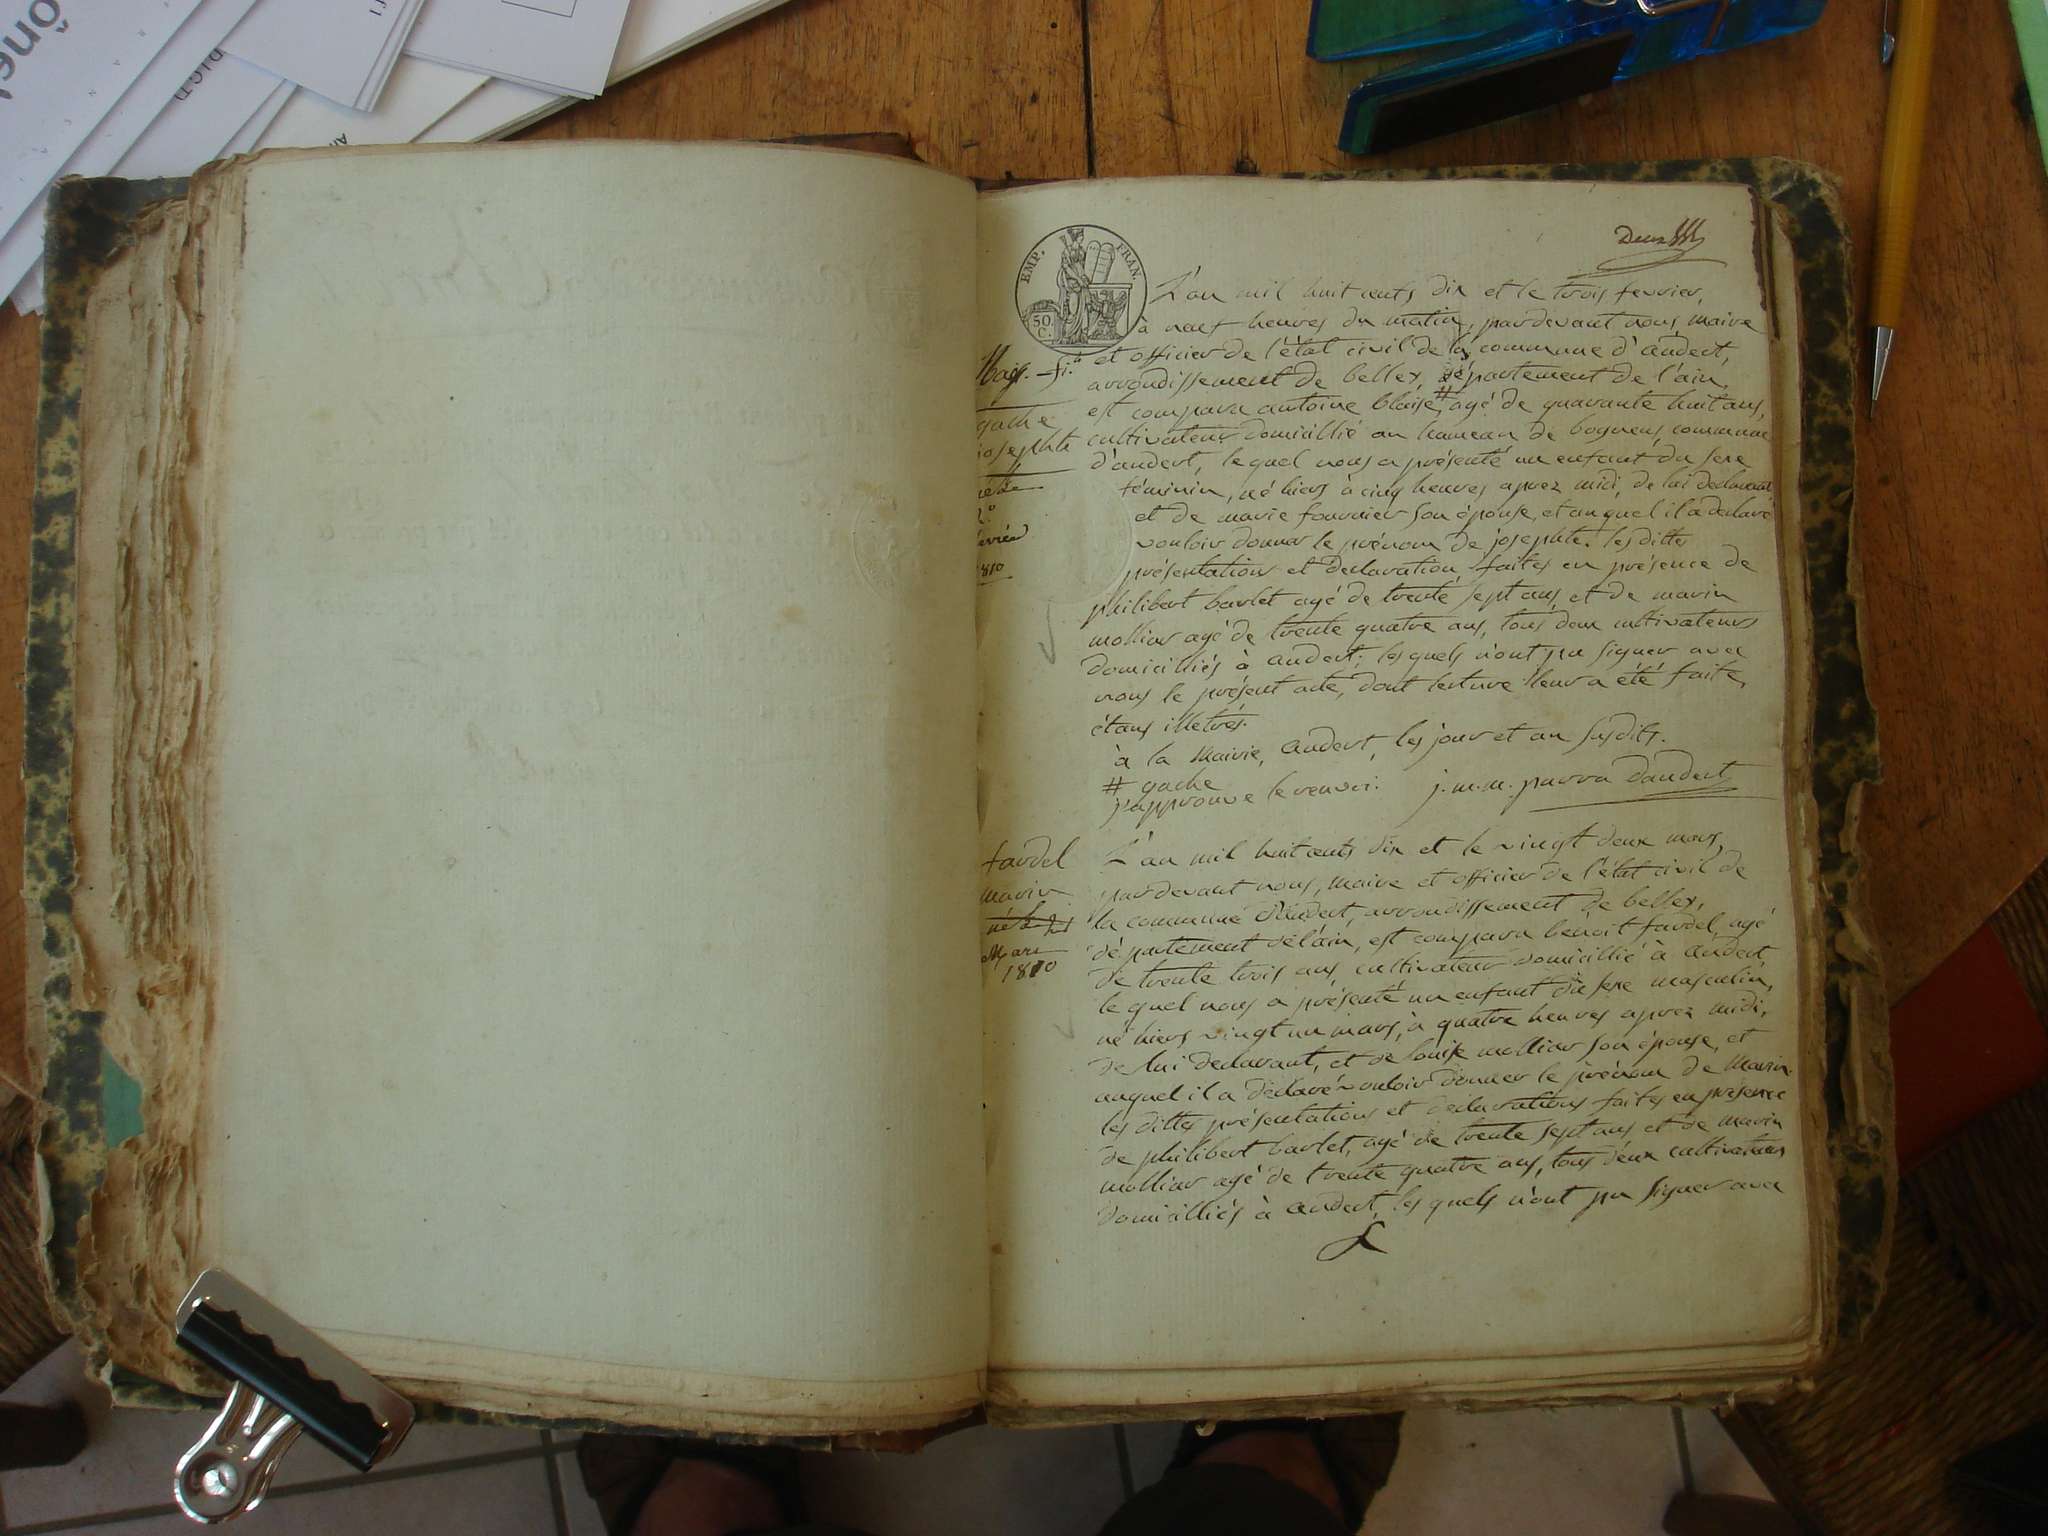 Deux
EMP. FRAN.
50 C.
L'an mil huit cents dix et le trois fevrier,
à neuf heures du matin, pardevant nous, maire
et officier de l'état civil de la commune d'andert,
arrondissement de belley, département de l'ain,
est comparu antoine blaise # agé de quarante huit ans,
cultivateur domicillié au hameau de bognens, commune
d'andert, le quel nous a présenté un enfant du sexe
féminin, né hiers à cinq heures aprez midi, de lui declarant
et de marie fournier son épouse, et auquel il a declaré
vouloir donner le prénom de josephte. les dittes
présentation et declaration faites en présence de
philibert barlet agé de trente sept ans, et de marin
molliar agé de trente quatre ans, tous deux cultivateurs
domicilliés à andert; les quels n'ont pu signer avec
nous le présent acte, dont lecture leur a été faite,
étans illetrés.
à la mairie, andert, les jour et an susdits.
# gache
j'approuve le renvoi. j. m. m. parra dandert
gache
josephte
née le
2.
fevrier
1810
fardel
marin
né le 21
Mars
1810
L'an mil huit cents dix et le vingt deux mars,
pardevant nous, maire et officier de l'état civil de
la commune d'andert, arrondissement de belley,
département de l'ain, est comparu benoit fardel, agé
de trente trois ans, cultivateur domicillié à andert,
le quel nous a présenté un enfant du sexe masculin,
né hiers vingt un mars, à quatre heures aprez midi,
de lui declarant, et de louise molliar son épouse, et
auquel il a déclaré vouloir donner le prénom de marin.
les dittes présentations et declarations faites en présence
de philibert barlet, agé de trente sept ans et de marin
molliar agé de trente quatre ans, tous deux cultivateurs
domicilliés à andert, les quels n'ont pu signer avec